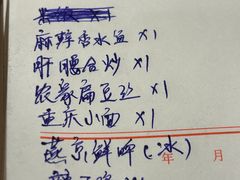 麻辣香水鱼 X1
肝腰合炒 X1
农家扁豆丝 X1
重庆小面 X1
燕京鲜啤(冰)
年 月